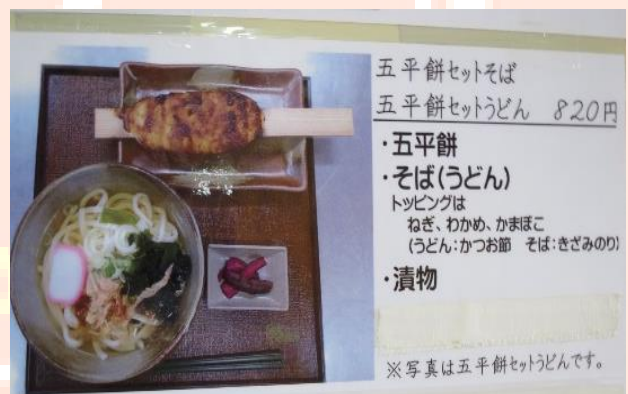 五平餅セットそば
五平餅セットうどん 820円
・五平餅
・そば(うどん)
トッピングは
ねぎ、わかめ、かまぼこ
(うどん:かつお節 そば:きざみのり)
・漬物
※写真は五平餅セットうどんです。